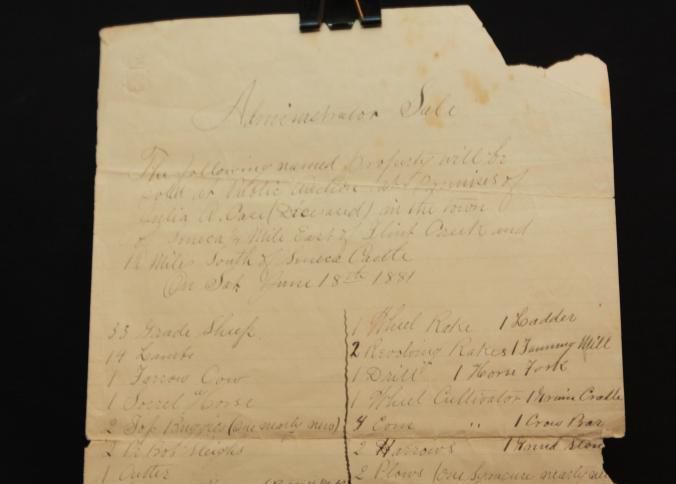 Administrator Sale
The following named Property will be
sold at Public Auction at Premises of
Julia A. Case (Diceased) in the town
of Seneca ¼ Mile East of Flint Creek and
1½ Miles South of Seneca Castle
On Sat June 18th 1881
33 Grade Sheep
14 Lambs
1 Farrow Cow
1 Sorrel Horse
2 Top Buggies (One nearly new)
2 Bob Sleighs
1 Cutter
1 Wheel Rake 1 Ladder
2 Revolving Rakes 1 Fanning Mill
1 Drill 1 Horse Fork
1 Wheel Cultivator 1 Grain Cradle
4 Corn " 1 Crow Bar
2 Harrows 1 Grind Stone
2 Plows (One Syracuse nearly new